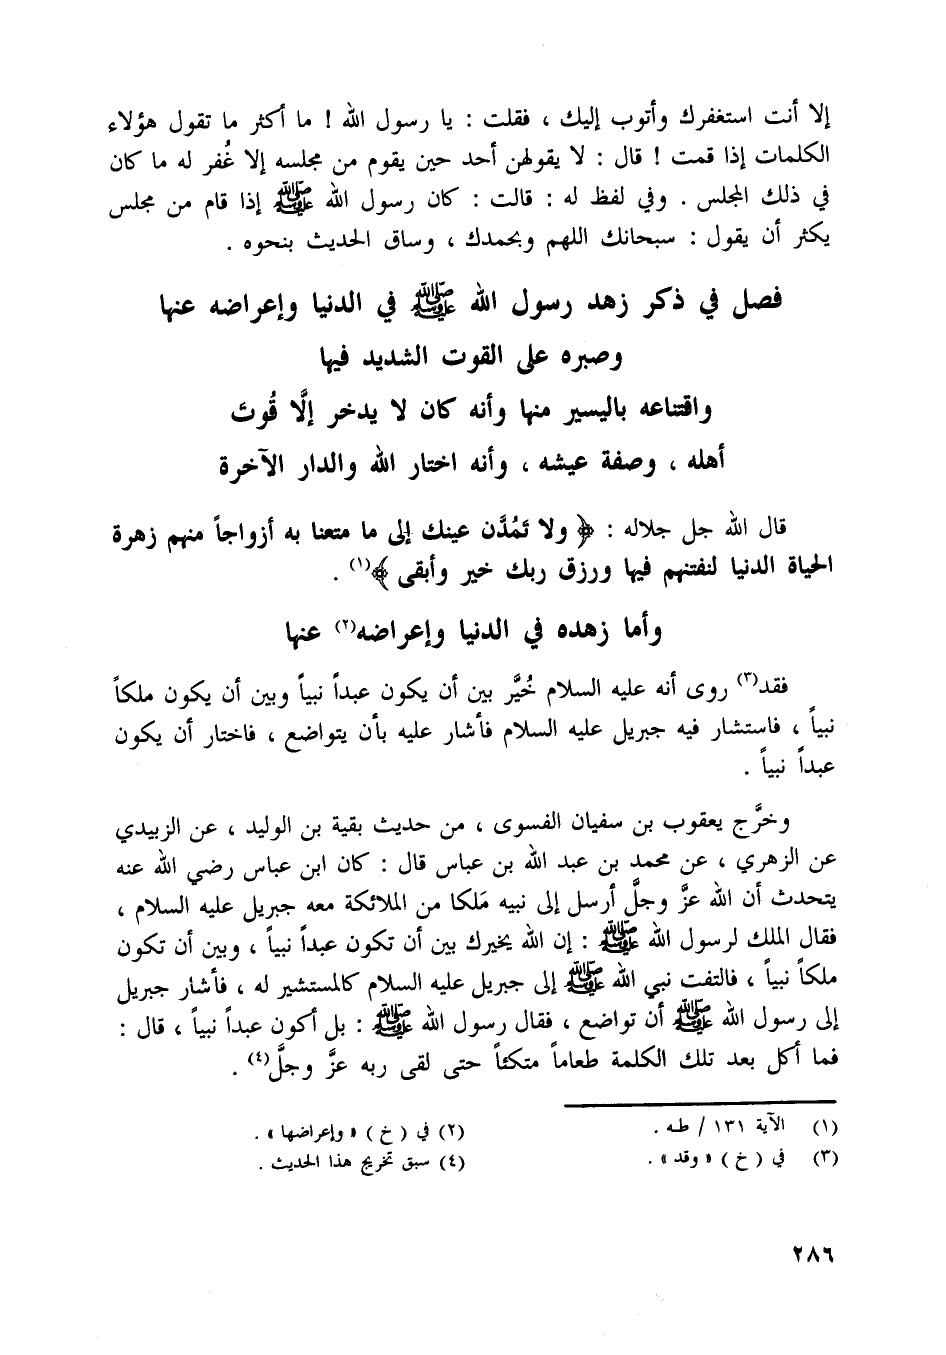 إلا أنت استغفرك وأتوب إليك ، فقلت : يا رسول الله ! ما أكثر ما تقول هؤلاء
الكلمات إذا قمت ! قال : لا يقولهن أحد حين يقوم من مجلسه إلا غُفر له ما كان
في ذلك المجلس . وفي لفظ له : قالت : كان رسول الله ﷺ إذا قام من مجلس
يكثر أن يقول : سبحانك اللهم وبحمدك ، وساق الحديث بنحوه .
فصل في ذكر زهد رسول الله ﷺ في الدنيا وإعراضه عنها
وصبره على القوت الشديد فيها
واقتناعه باليسير منها وأنه كان لا يدخر إلَّا قُوتَ
أهله ، وصفة عيشه ، وأنه اختار الله والدار الآخرة
قال الله جل جلاله : ﴿ ولا تَمُدَّن عينك إلى ما متعنا به أزواجاً منهم زهرة
الحياة الدنيا لنفتنهم فيها ورزق ربك خير وأبقى ﴾(١) .
وأما زهده في الدنيا وإعراضه(٢) عنها
فقد(٣) روى أنه عليه السلام خُيَّر بين أن يكون عبداً نبياً وبين أن يكون ملكاً
نبياً ، فاستشار فيه جبريل عليه السلام فأشار عليه بأن يتواضع ، فاختار أن يكون
عبداً نبياً .
وخرَّج يعقوب بن سفيان الفسوى ، من حديث بقية بن الوليد ، عن الزبيدي
عن الزهري ، عن محمد بن عبد الله بن عباس قال : كان ابن عباس رضي الله عنه
يتحدث أن الله عزَّ وجلَّ أرسل إلى نبيه مَلكا من الملائكة معه جبريل عليه السلام ،
فقال الملك لرسول الله ﷺ : إن الله يخيرك بين أن تكون عبداً نبياً ، وبين أن تكون
ملكاً نبياً ، فالتفت نبي الله ﷺ إلى جبريل عليه السلام كالمستشير له ، فأشار جبريل
إلى رسول الله ﷺ أن تواضع ، فقال رسول الله ﷺ : بل أكون عبداً نبياً ، قال :
فما أكل بعد تلك الكلمة طعاماً متكئاً حتى لقى ربه عزَّ وجلَّ(٤) .
(١) الآية ١٣١ / طه .
(٢) في ( خ ) « وإعراضها » .
(٣) في ( خ ) « وقد » .
(٤) سبق تخريج هذا الحديث .
٢٨٦